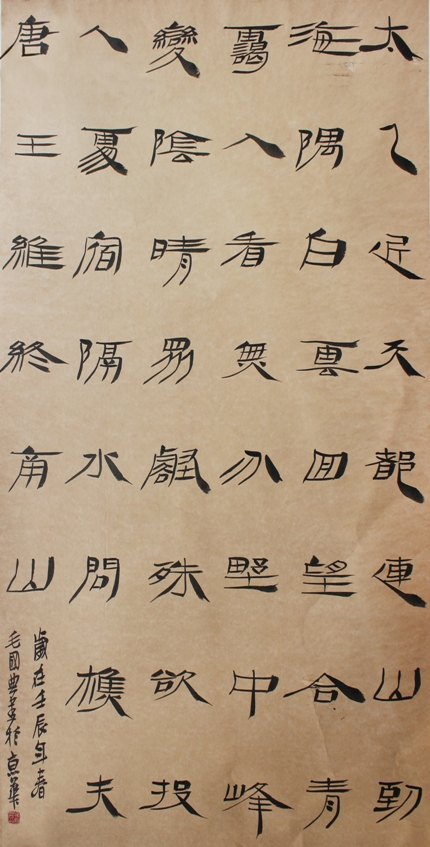 太乙近天都連山到
海隅白雲回望合青
靄入看無分野中峰
變陰晴眾壑殊欲投
人處宿隔水問樵夫
唐王維終南山
歲在壬辰年春
毛國典書於京華